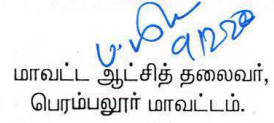 மாவட்ட ஆட்சித் தலைவர்,
பெரம்பலூர் மாவட்டம்.